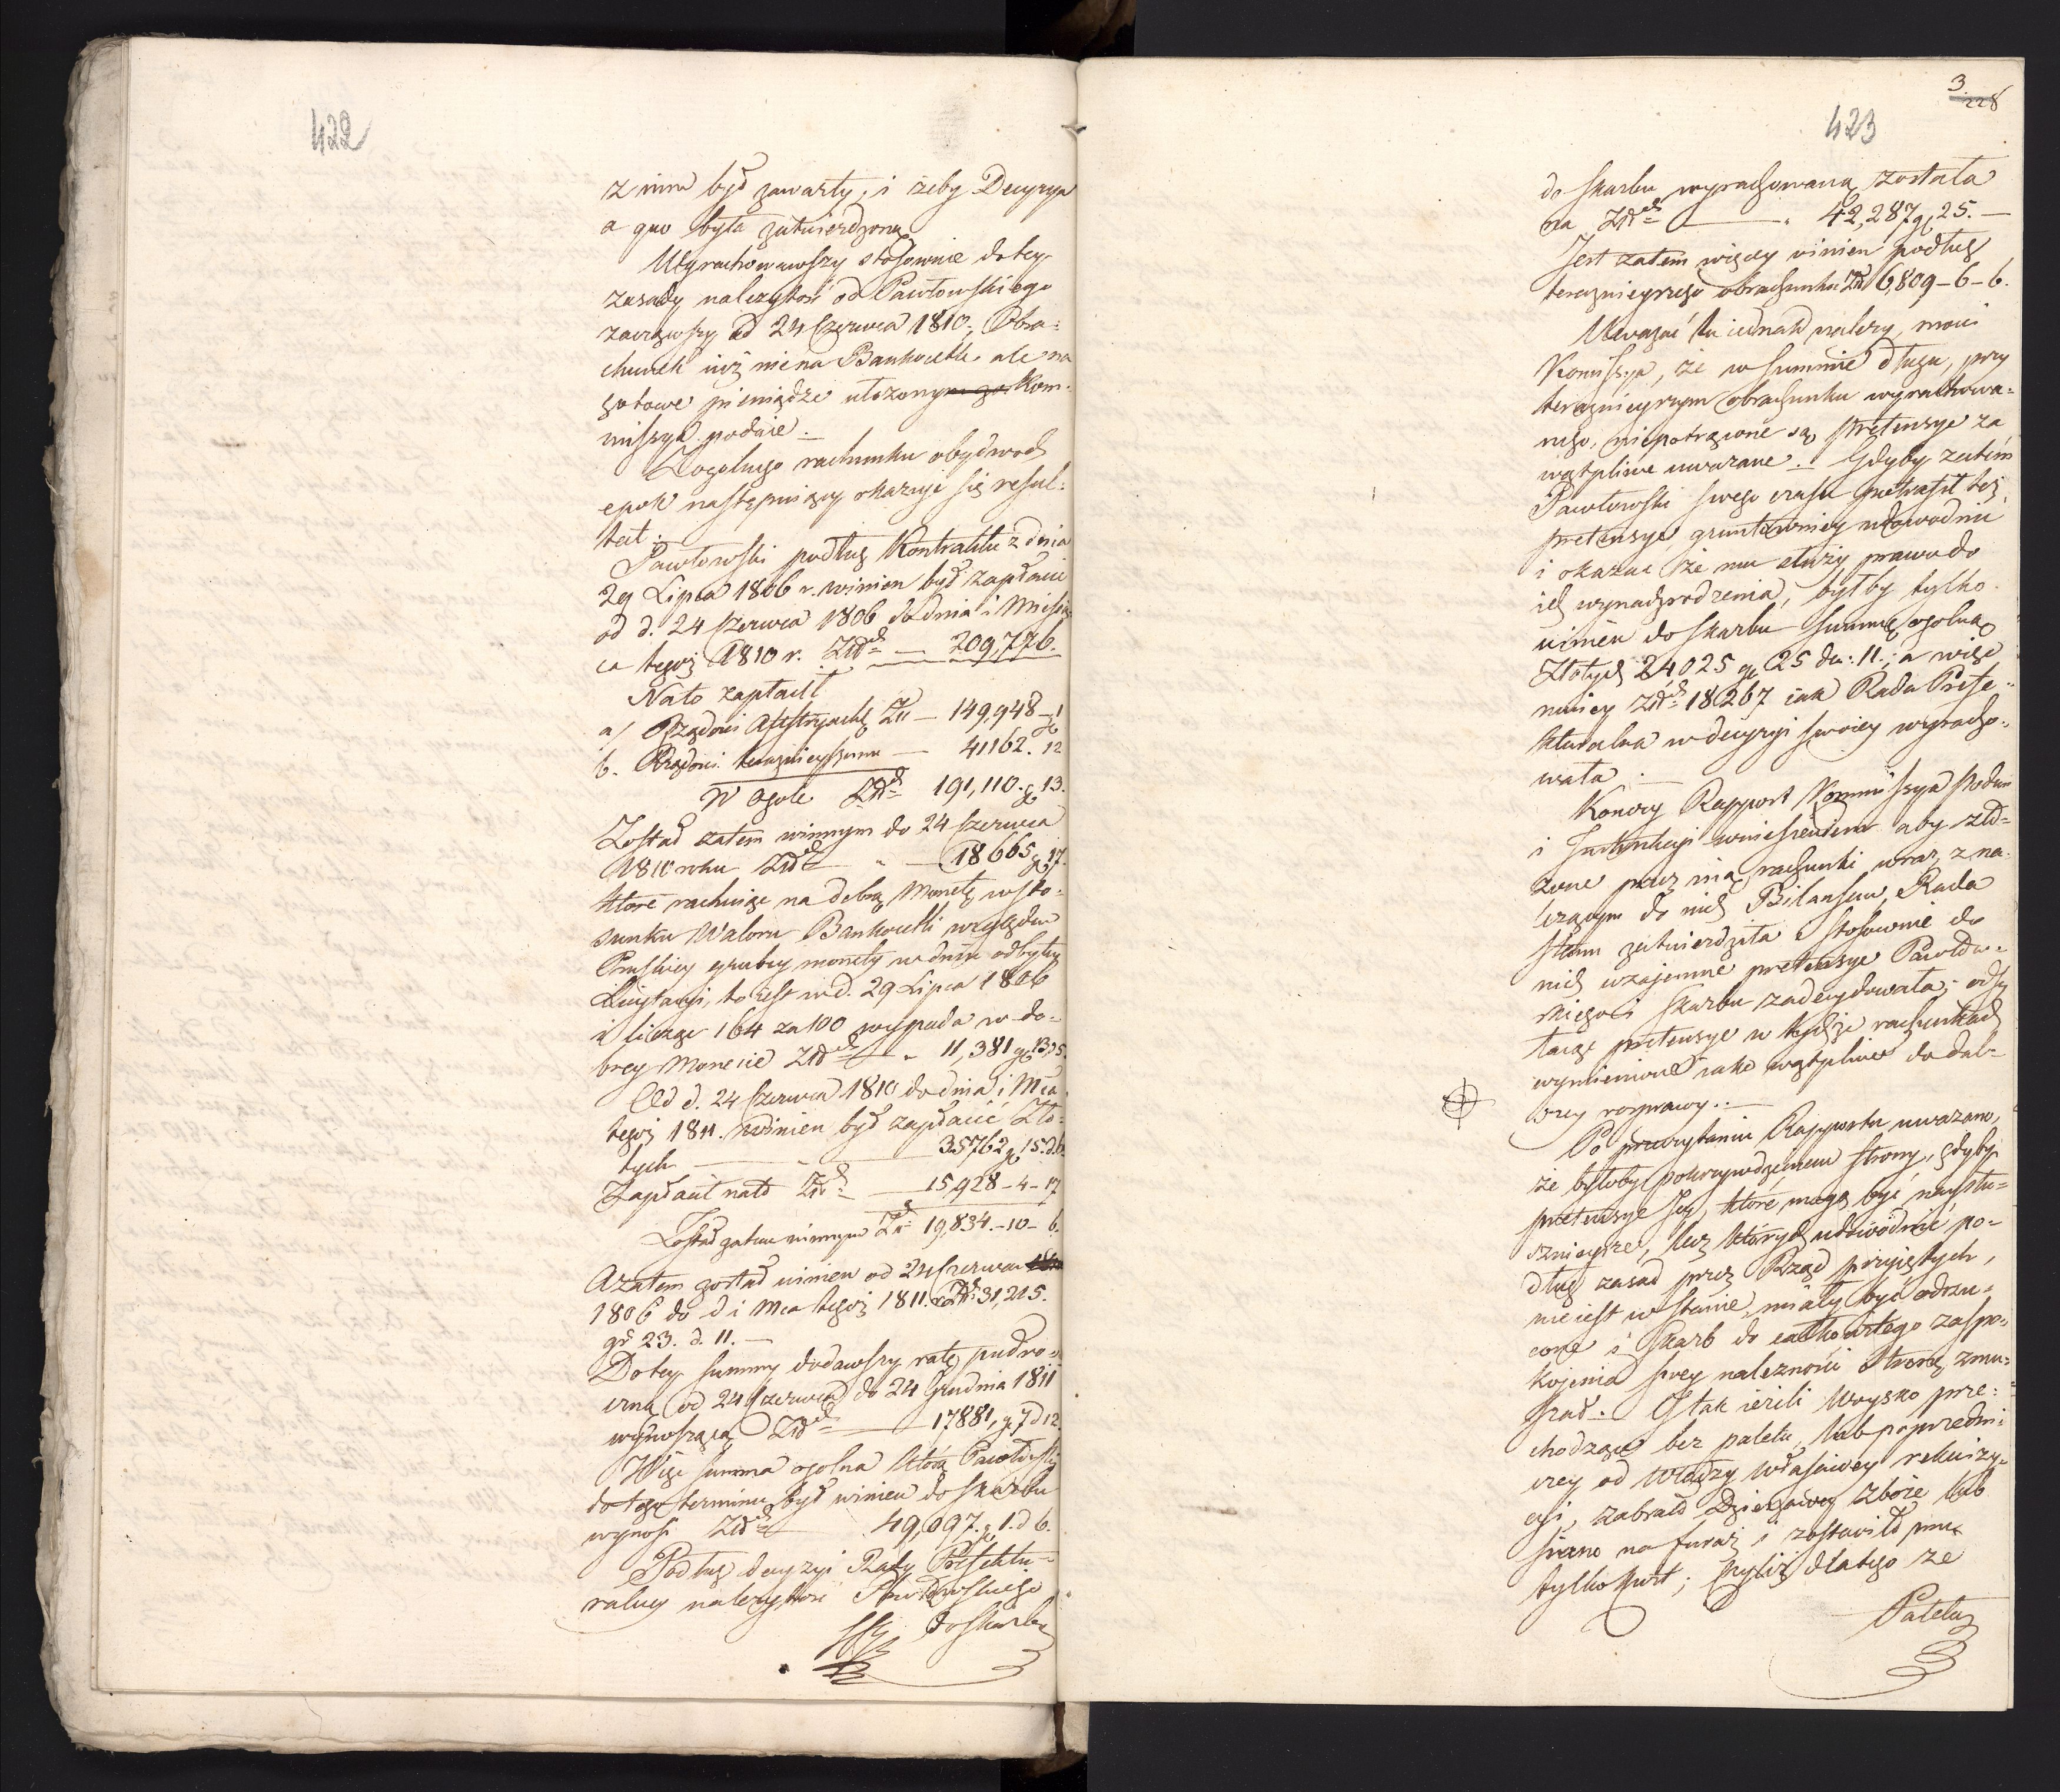 422
z nim był zawarty, i żeby Decyzya
a quo była zatwierdzona
Wyrachowawszy stosownie do tey
zasady należytość od Pawłowskiego
zacząwszy od 24 Czerwca 1810. Obra=
chunek iuż nie na Bankocetle ale na
gotowe pieniądze ułożony Kom=
missya podaie.
Z ogolnego rachunku obydwoch
epok następuiący okazuie się resul=
tat:
Pawłowski podług Kontraktu z dnia
29 Lipca 1806 r. winien był zapłacić
od d. 24 Czerwca 1806 do dnia i Miesią
ca tegoż 1810 r. Złłch — 209,776.
Na to zapłacił
a/ Rządowi Austryack: Złł — 149,948 — 1
b. Rządowi teraznieyszemu — 41162. 12
W Ogole Złłch 191,110. g 13.
Został zatem winnym do 24 Czerwca
1810 roku Złłch — 18665 g 17.
ktore rachuiąc na dobrą Monetę w sto=
sunku Waloru Bankocetli względem
Pruskiey grubey monety w dniu odbytey
Licytacyi, to iest w d. 29 Lipca 1806
i licząc 164 za 100 wypada w do=
brey Monecie Złłch — 11,381 g 13, 5.
Od d. 24 Czerwca 1810 do dnia i Mca
tegoż 1811. winien był zapłacić Zło=
tych — 35762 g 15. d. 6.
Zapłacił na to Złłch — 15,928 — 4 — 17
Został zatem winnym Złłch 19,834. — 10 — 6.
A zatem został winien od 24 Czerwca
1806 do d i Mca tegoż 1811. r Złłch 31,215.
gr 23. d. 11. —
Do tey summy dodawszy ratę pułro=
czną od 24 Czerwca do 24 Grudnia 1811
wynoszącą Złłch — 17881, g 7 d 12
Więc summa ogolna którą Pawłowski
do tego terminu był winien do skarbu
wynosi Złłch 49,097. g 1. d 6.
Podług decyzyi Rady Prefektu=
ralney należytość Pawłowskiego
do skarbu
3.
228
423
do skarbu wyrachowana została
na Złłch — 42,287 g 25. —
Jest zatem więcey winien podług
teraznieyszego obrachunku Złł 6,809 — 6 — 6.
Uważać tu iednak należy, mowi
Komissya, że w summie długu, przy
teraznieyszym obrachunku wyrachowa=
nego, niepotrącone są pretensye za
wątpliwe uważane. Gdyby zatém
Pawłowski swego czasu potrafił też
pretensye gruntowniey udowodnić
i okazać że mu służy prawo do
ich wynadgrodzenia, byłby tylko
winien do skarbu summę ogolną
Złotych 24025 g 25 de: 11.; a więc
mniey Złłch 18267 iak Rada Prefe=
kturalna w decyzyi swoiey wyracho=
wała. —
Konczy Rapport Kommissya Podan
i Instrukcyi wniesieniem aby zło=
żone przez nią rachunki wraz z na=
leżącym do nich Bilansem, Rada
Stanu zatwierdziła i stosownie do
nich wzajemne pretensye Pawłow=
skiego i Skarbu zadecydowała, odsy
łaiąc pretensye w tychże rachunkach
wymienione iako wątpliwe do dal=
szey rozprawy. —
Po przeczytaniu Rapportu uważano,
że byłoby pokrzywdzeniem strony, gdyby
pretensye Jey, które mogą być naysłu=
sznieysze, lecz których udowodnić po=
dług zasad przez Rząd przyiętych,
nie iest w stanie, miały być odrzu=
cone i Skarb do całkowitego zaspo=
kojenia swey należności Stronę zmu=
szał. I tak ieżeli Woysko prze=
chodzące bez paletu lub poprzedni
czey od Władzy właściwey rekwizy=
cyi, zabrało Dzierżawcy zboże lub
siano na furaż i zostawiło mu
tylko kwit; czyliż dlatego że
Paletu